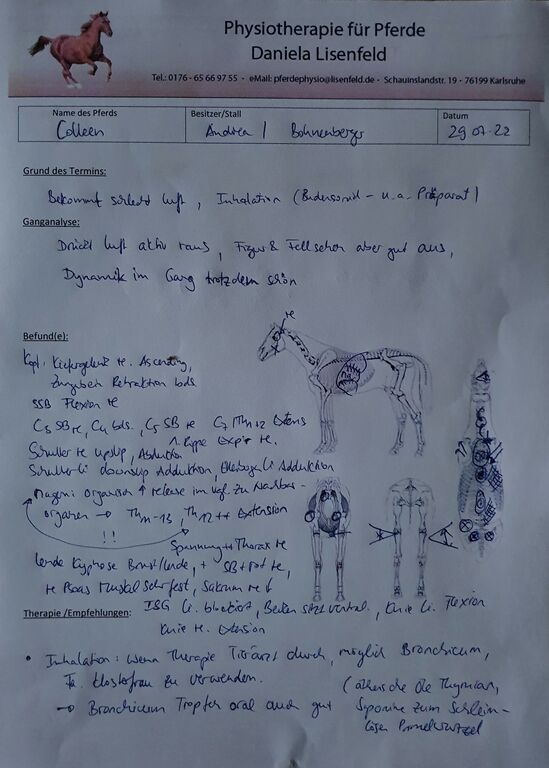 Physiotherapie für Pferde
Daniela Lisenfeld
Tel.: 0176 - 65 66 97 55 - eMail: pferdephysio@lisenfeld.de - Schauinslandstr. 19 - 76199 Karlsruhe
Name des Pferds Besitzer/Stall Datum
Colleen Andrea | Bohnenberger 29.07.22
Grund des Termins:
Bekommt schlecht Luft, Inhalation (Budesonid - u. a. Präparat)
Ganganalyse:
Drückt Luft aktiv raus, Figur & Fell sehen aber gut aus,
Dynamik im Gang trotzdem schön
Befund(e):
re
Kopf: Kiefergelenk re. Ascending,
Zungenbein Retraktion bds.
SSB Flexion re
C3 SB re, C4 bds., C5 SB re C7 Th1+2 Extens
1. Rippe Expir re.
Schulter re upslip, Abduktion
Schulter li downslip Adduktion, Ellebogen li Adduktion
Magen: Organism ↑ release im Vgl. zu Nachbar-
organen → Th11-13, Th12 ++ Extension
!!
Spannung ++ Thorax re
Lende Kyphose Brust/Lende, + SB + Rot re,
re Psoas Muskel sehr fest, Sakrum re ↓
Therapie /Empfehlungen: ISG li. blockiert, Becken sitzt ventral., Knie li. Flexion
Knie re. Extension
• Inhalation: wenn Therapie Tierarzt durch, möglich Bronchicum,
Fa. Klosterfrau zu verwenden.
(ätherische Öle Thymian,
→ Bronchicum Tropfen oral auch gut Saponine zum Schleim-
lösen Primelwurzel